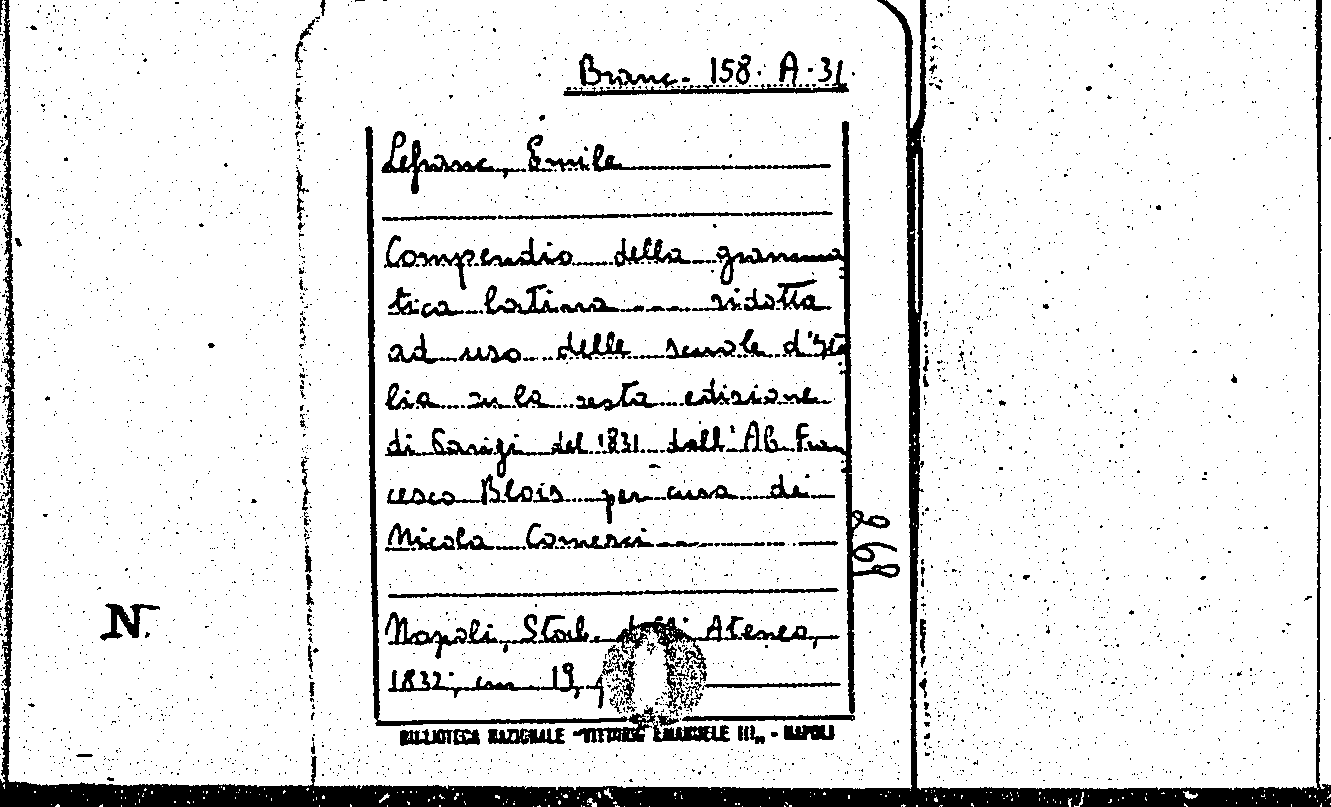 Branc. 158. A.31
Lefranc, Emile
Compendio della gramma
tica latina ... ridotta
ad uso delle scuole d'Ita
lia su la sesta edizione
di Parigi del 1831 dall'Ab. Fran
cesco Blois per cura di
Nicola Comerci
Napoli, Stab. dell' Ateneo,
1832; cm 19,
BIBLIOTECA NAZIONALE "VITTORIO EMANUELE III„ - NAPOLI
868
N.